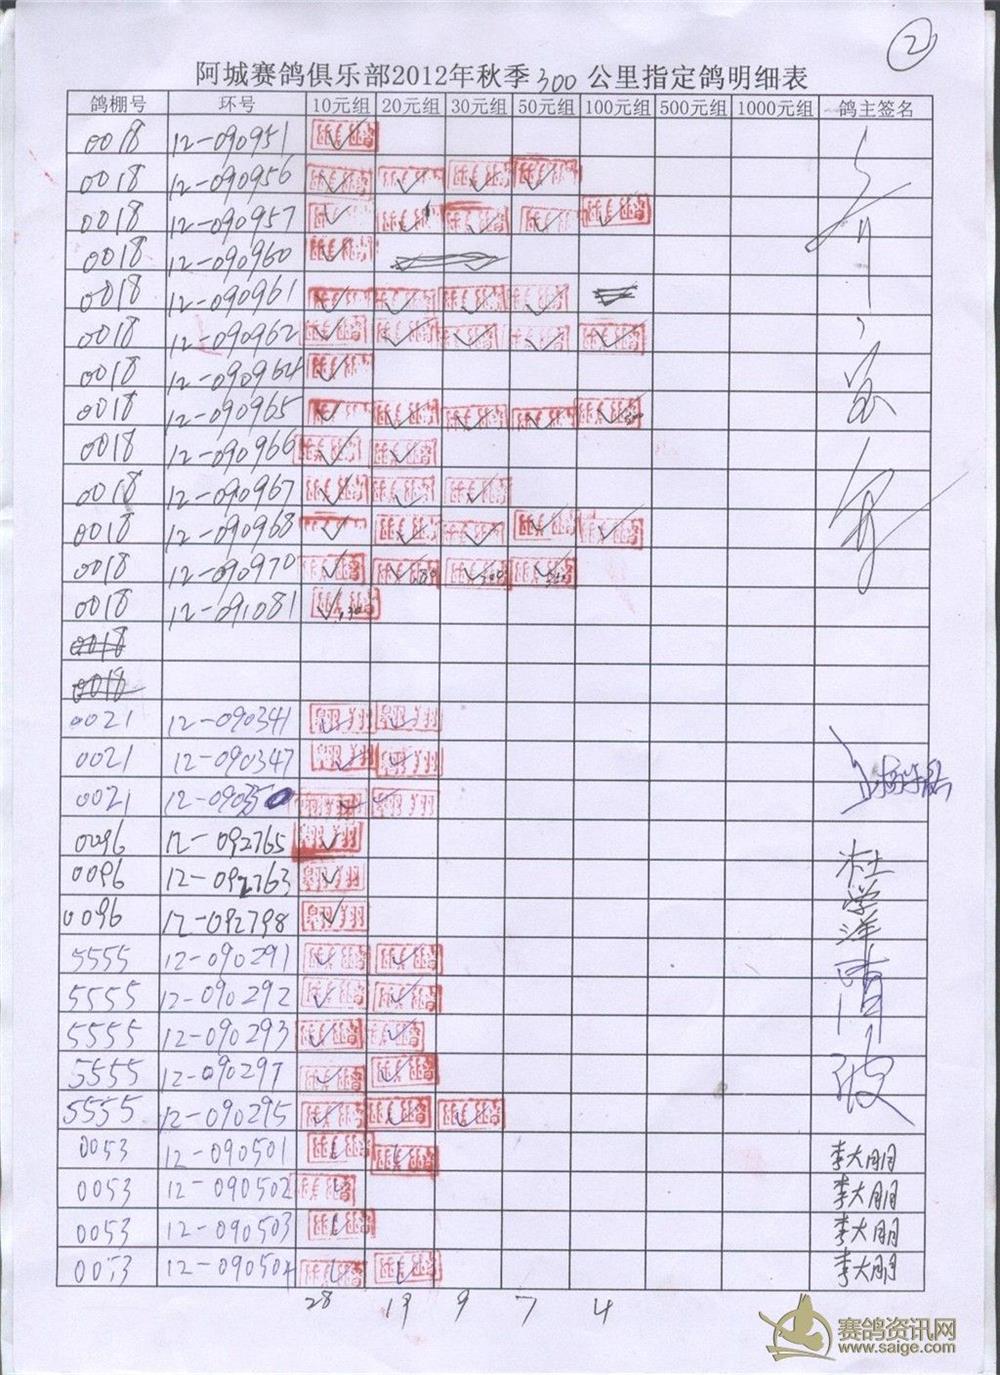 2
阿城赛鸽俱乐部2012年秋季300公里指定鸽明细表
鸽棚号 环号 10元组 20元组 30元组 50元组 100元组 500元组 1000元组 鸽主签名
0018 12-090951 ✓
0018 12-090956 ✓ ✓ ✓ ✓
0018 12-090957 ✓ ✓ ✓ ✓ ✓
0018 12-090960 ✓
0018 12-090961 ✓ ✓ ✓ ✓
0018 12-090962 ✓ ✓ ✓ ✓ ✓
0018 12-090964 ✓
0018 12-090965 ✓ ✓ ✓ ✓ ✓
0018 12-090966 ✓ ✓
0018 12-090967 ✓ ✓ ✓
0018 12-090968 ✓ ✓ ✓ ✓ ✓
0018 12-090970 ✓ ✓ ✓ ✓
0018 12-091081 ✓
0018
0018
0021 12-090341 ✓ ✓
0021 12-090347 ✓ ✓
0021 12-090350 ✓ ✓
0096 12-092765 ✓
0096 12-092763 ✓ 杜
0096 12-092798 ✓ 学洋
5555 12-090291 ✓ ✓
5555 12-090292 ✓ ✓
5555 12-090293 ✓ ✓
5555 12-090297 ✓ ✓
5555 12-090295 ✓ ✓ ✓
0053 12-090501 ✓ 李大朋
0053 12-090502 ✓ 李大朋
0053 12-090503 ✓ 李大朋
0053 12-090504 ✓ ✓ 李大朋
28 19 9 7 4
赛鸽资讯网
www.saige.com